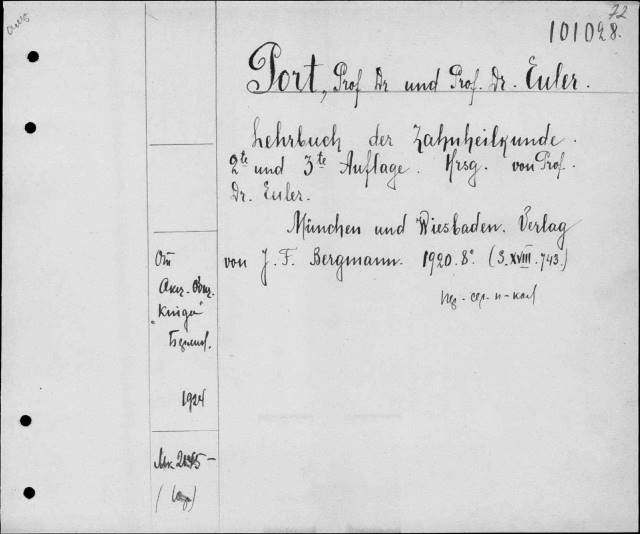 72
101028.
Port, Prof Dr und Prof. Dr. Euler.
Lehrbuch der Zahnheilkunde.
2te und 3te Auflage. Hrsg. von Prof.
Dr. Euler.
München und Wiesbaden. Verlag
von J. F. Bergmann. 1920. 8°. (S. XVIII. 743.)
От
Акц. Общ.
"Книга"
1924
Mк